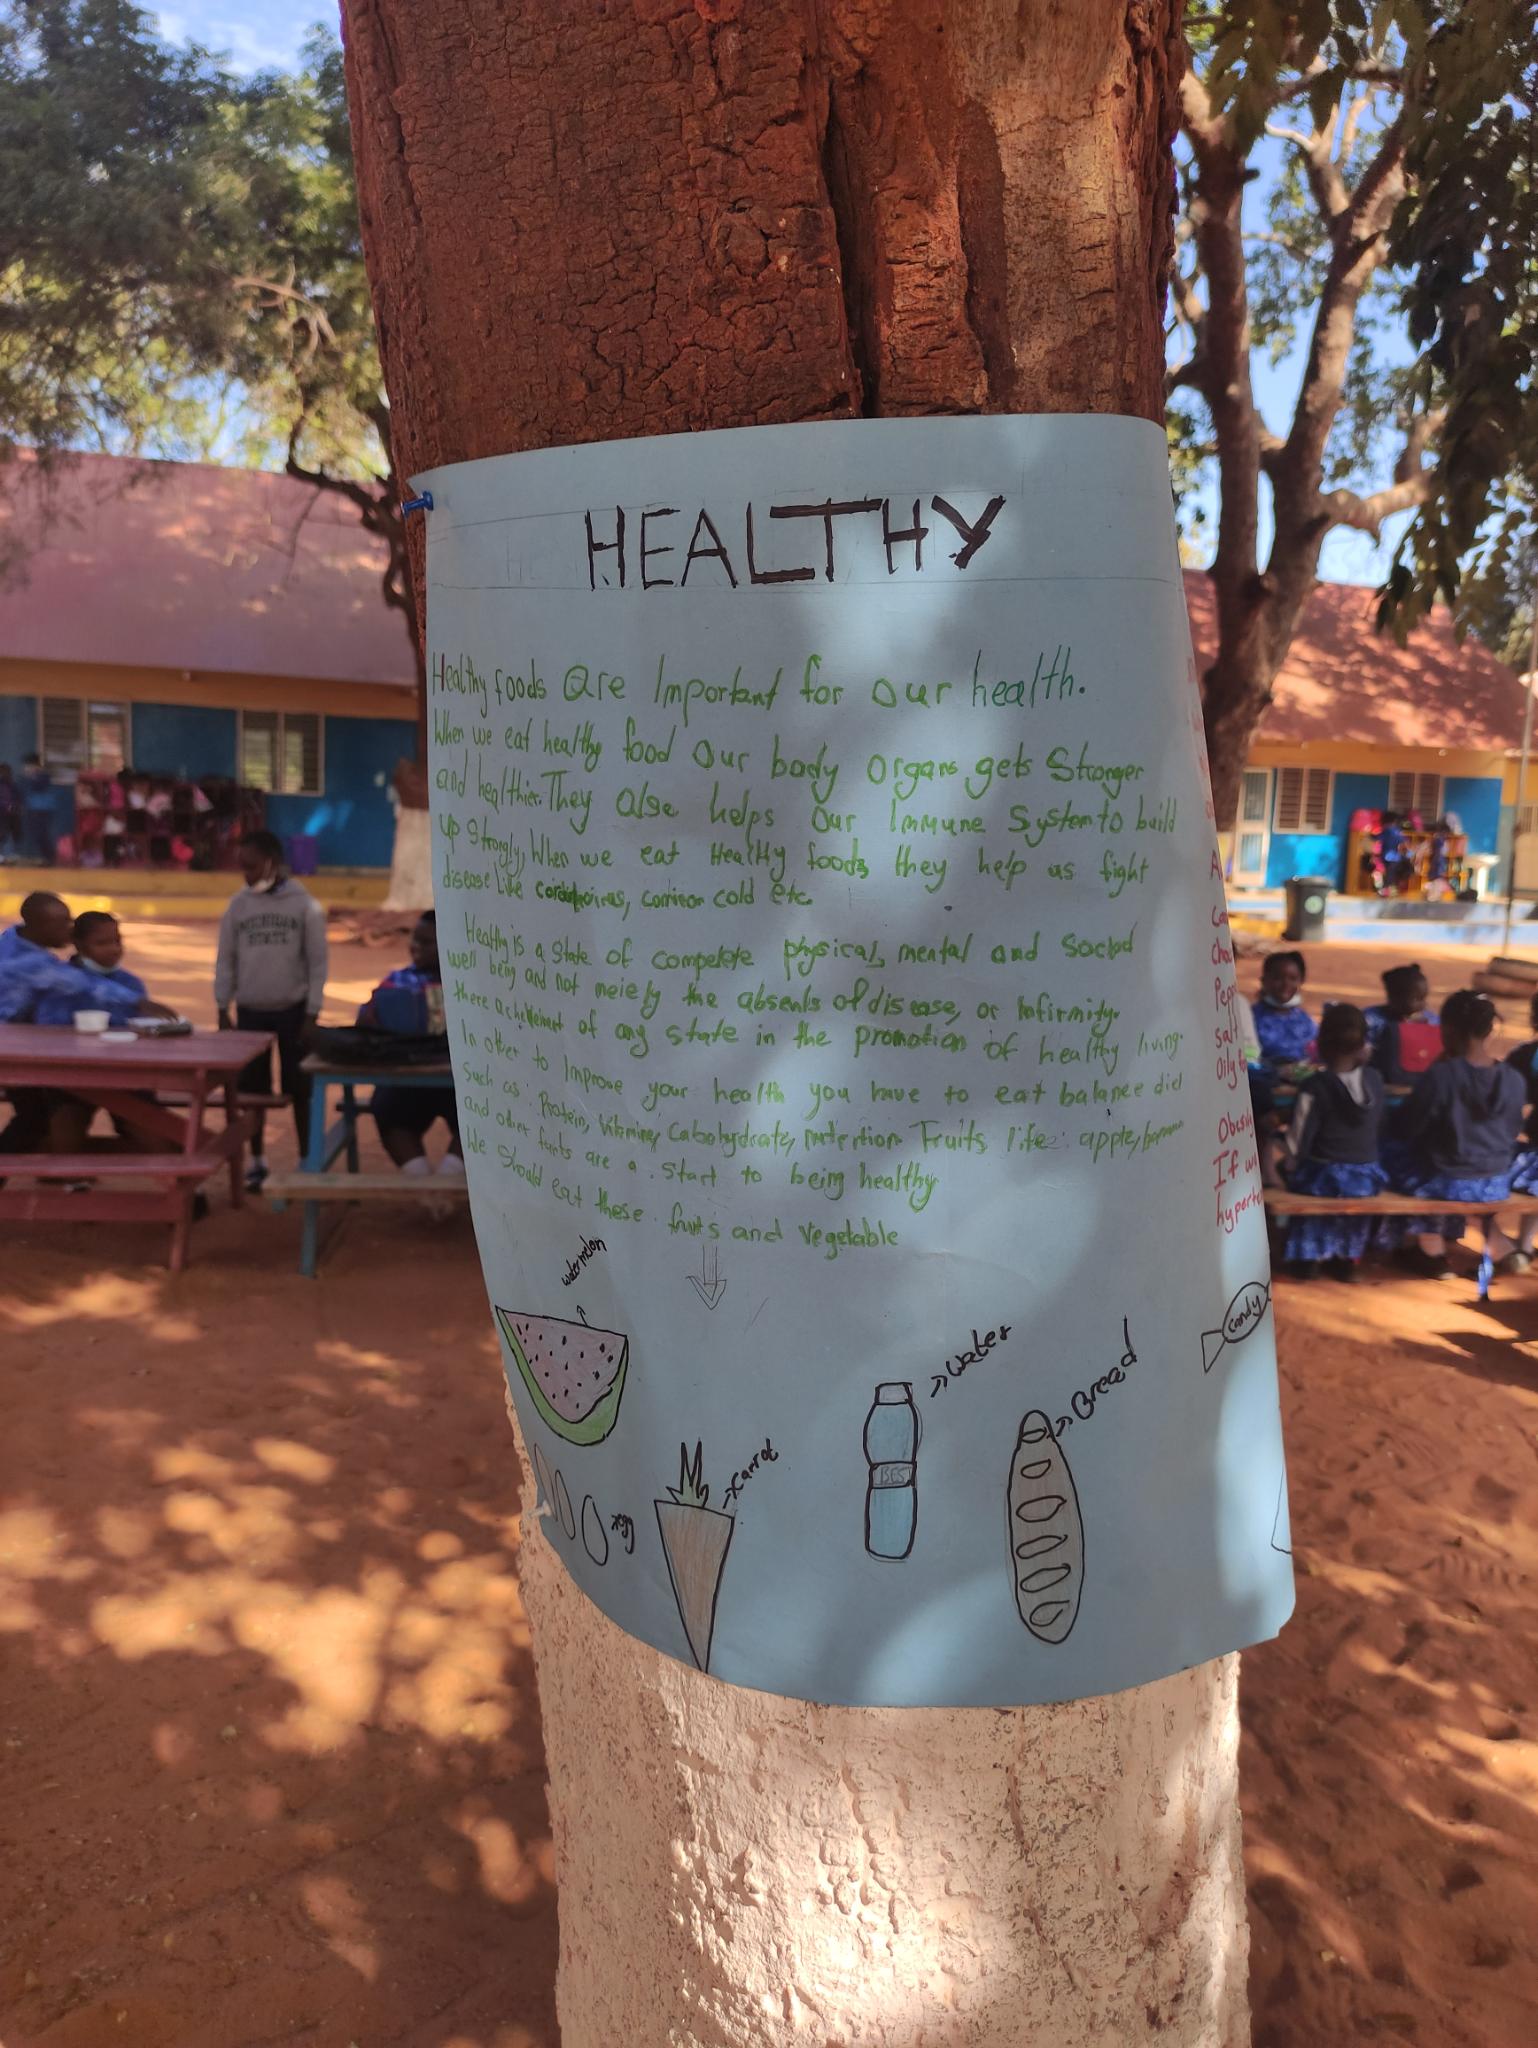 HEALTHY
Healthy foods are Important for our health.
When we eat healthy food our body organs gets Stronger
and healthier. They also helps our Immune System to build
up Strongly, When we eat Healthy foods they help us fight
disease like common cold etc.
Healthy is a State of compelete physical, mental and Social
well being and not merely the absents of disease, or Infirmity.
there acheivement of any state in the promotion of healthy living.
In other to Improve your health you have to eat balance diet
Such as: Protein, Vitamine, Cabohydrate, Fruits like: apple, banana
and other fruits are a start to being healthy
We Should eat these fruits and vegetable
watermelon
egg
Carrot
BEST
Water
Bread
Candy
salt
Oily
If we
MICHIGAN
STATE